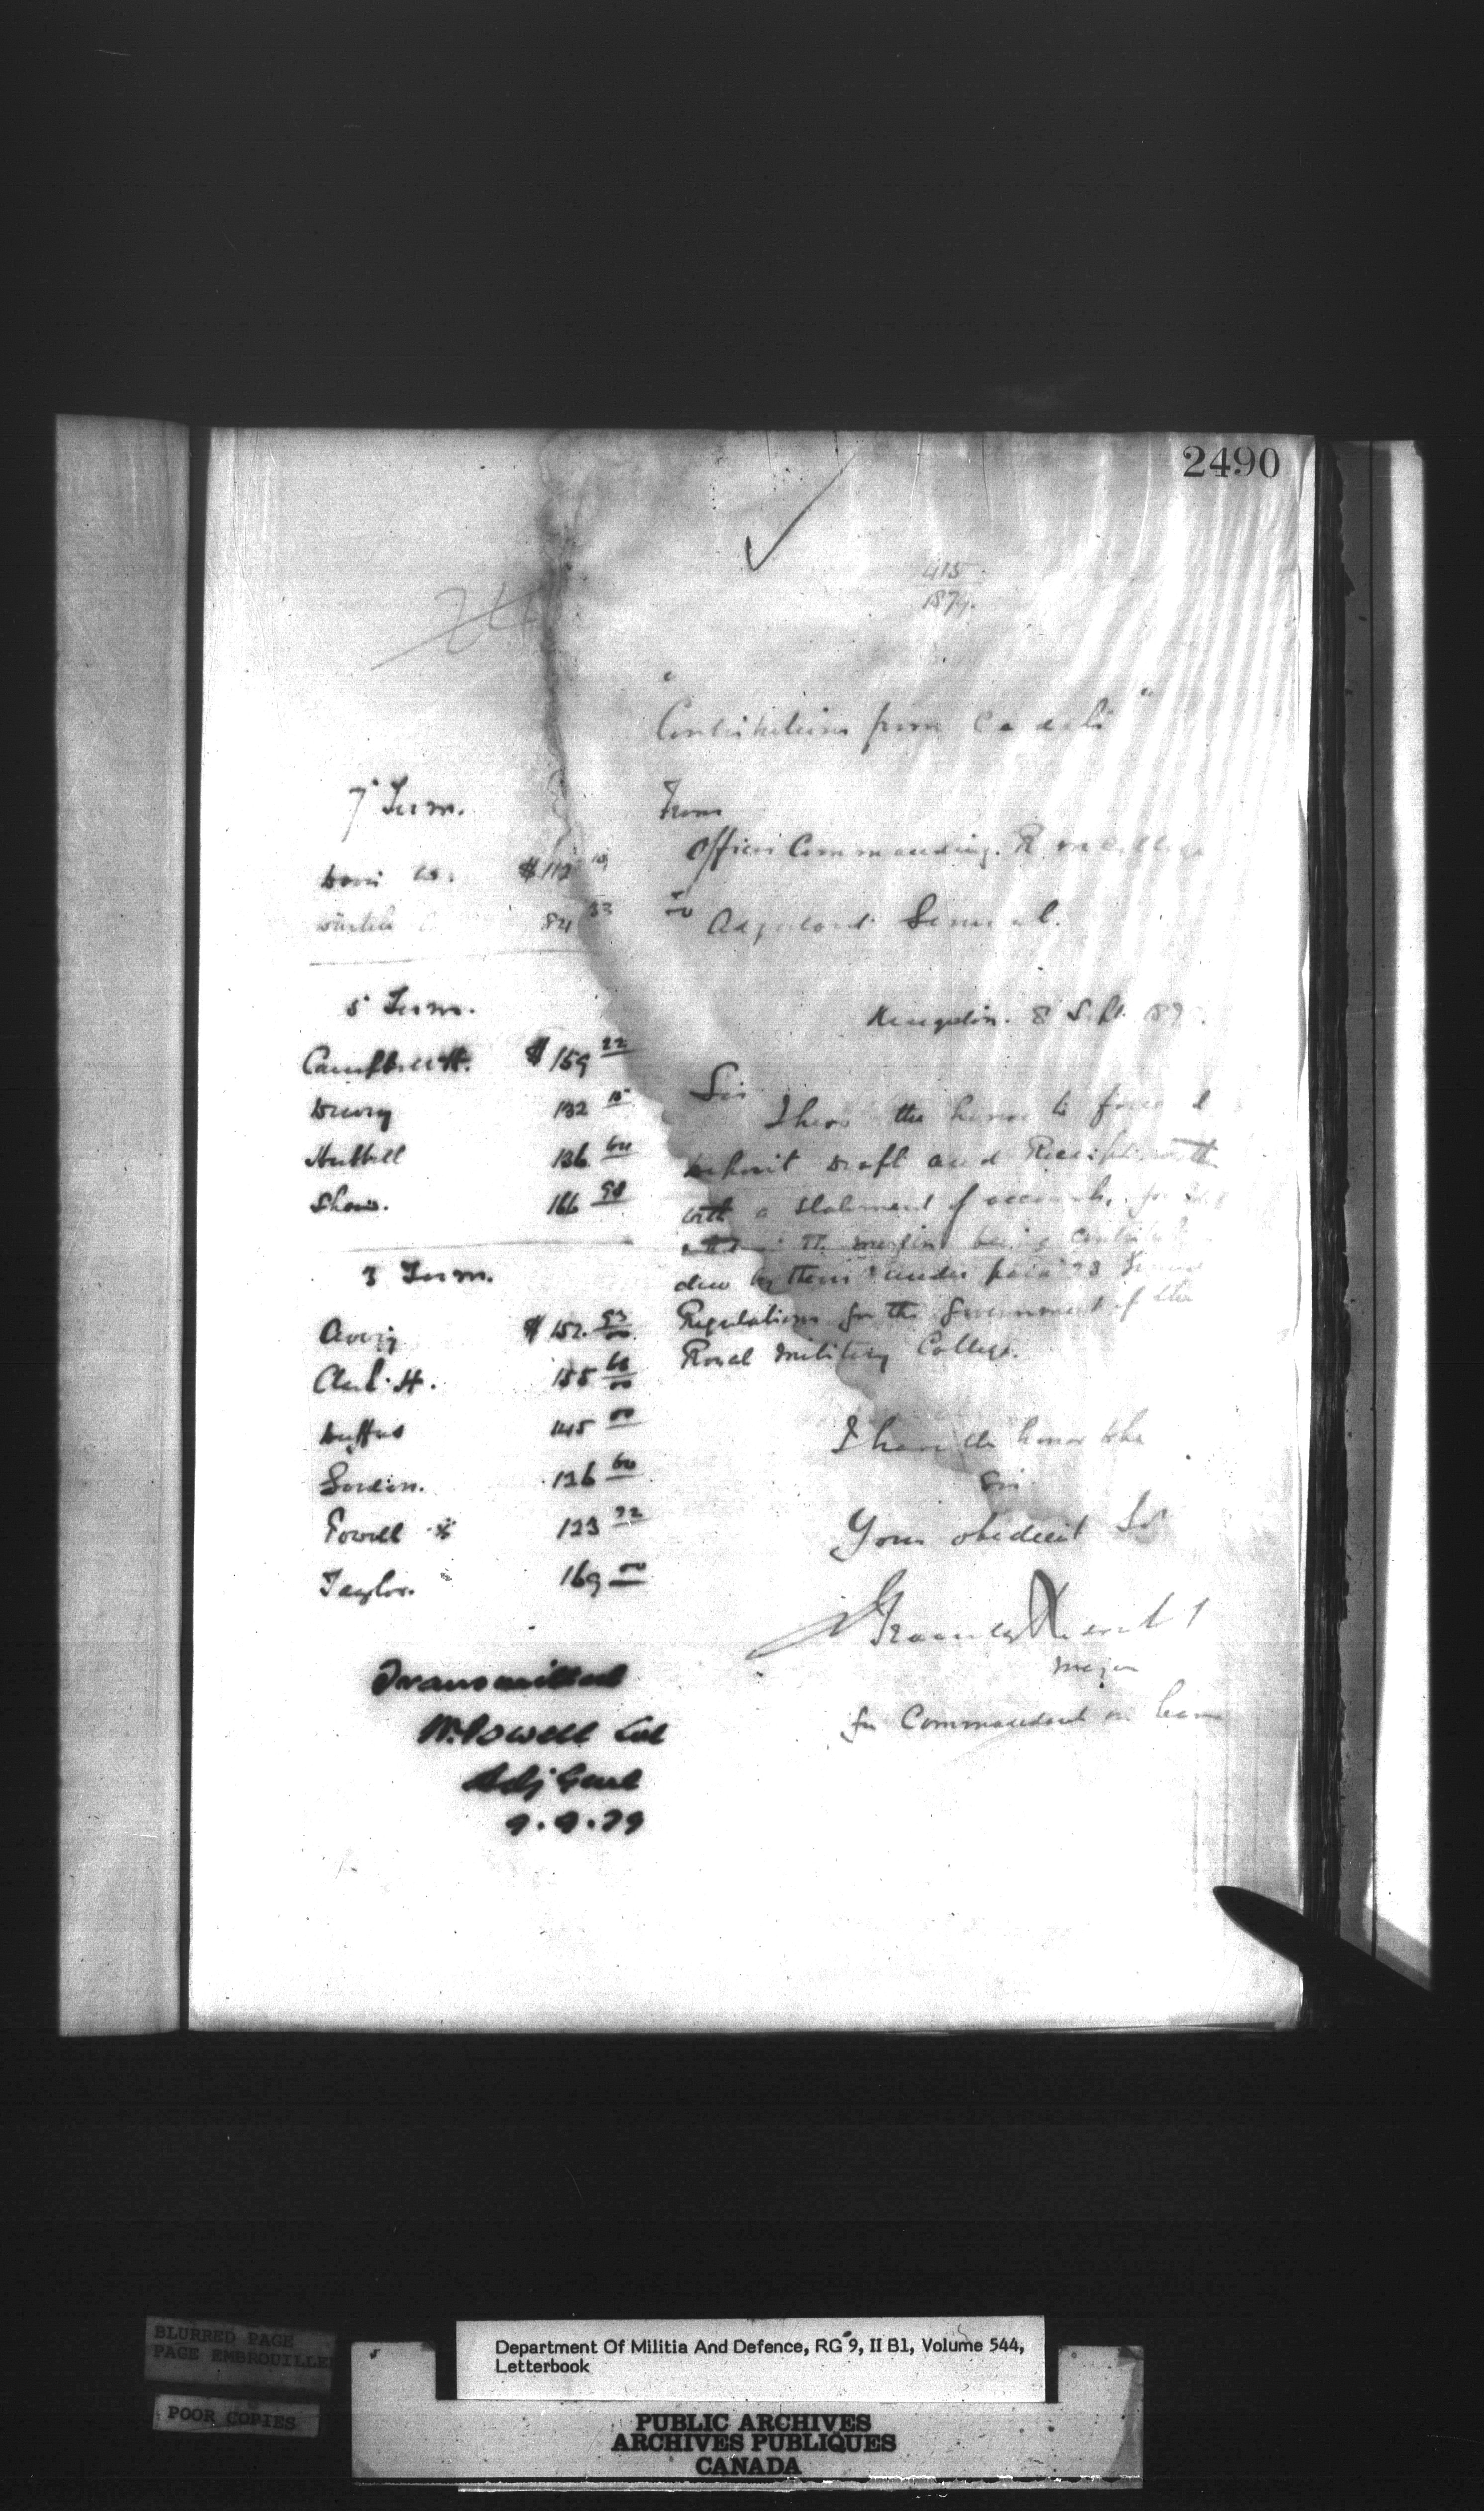 2490
415
1879.
"Contributions from Cadets"
From
Officer Commanding. R. M. College
To Adjutant General.
Kingston. 8 Sept. 1879.
7 Term.
$112
84 33
5 Term.
Campbell H. $159 22
Drury 132 15
Hubbell 136 60
Shaw. 166 98
3 Term.
Avery $152. 93
155 60
Duffus 145 00
Gordon. 126 60
Powell 123 22
Taylor. 169 00
Sir
I have the honor to forward
Deposit Draft and Receipt
with a statement of accounts, for
the margin being
due by them under para 23
Regulations for the Government of the
Royal Military College.
I have the honor to be
Sir
Your obedient
Major
for Commandant on leave
Transmitted
W. Powell Col
Adj Genl
9.9.79
BLURRED PAGE
PAGE EMBROUILLEE
POOR COPIES
Department Of Militia And Defence, RG 9, II B1, Volume 544,
Letterbook
PUBLIC ARCHIVES
ARCHIVES PUBLIQUES
CANADA